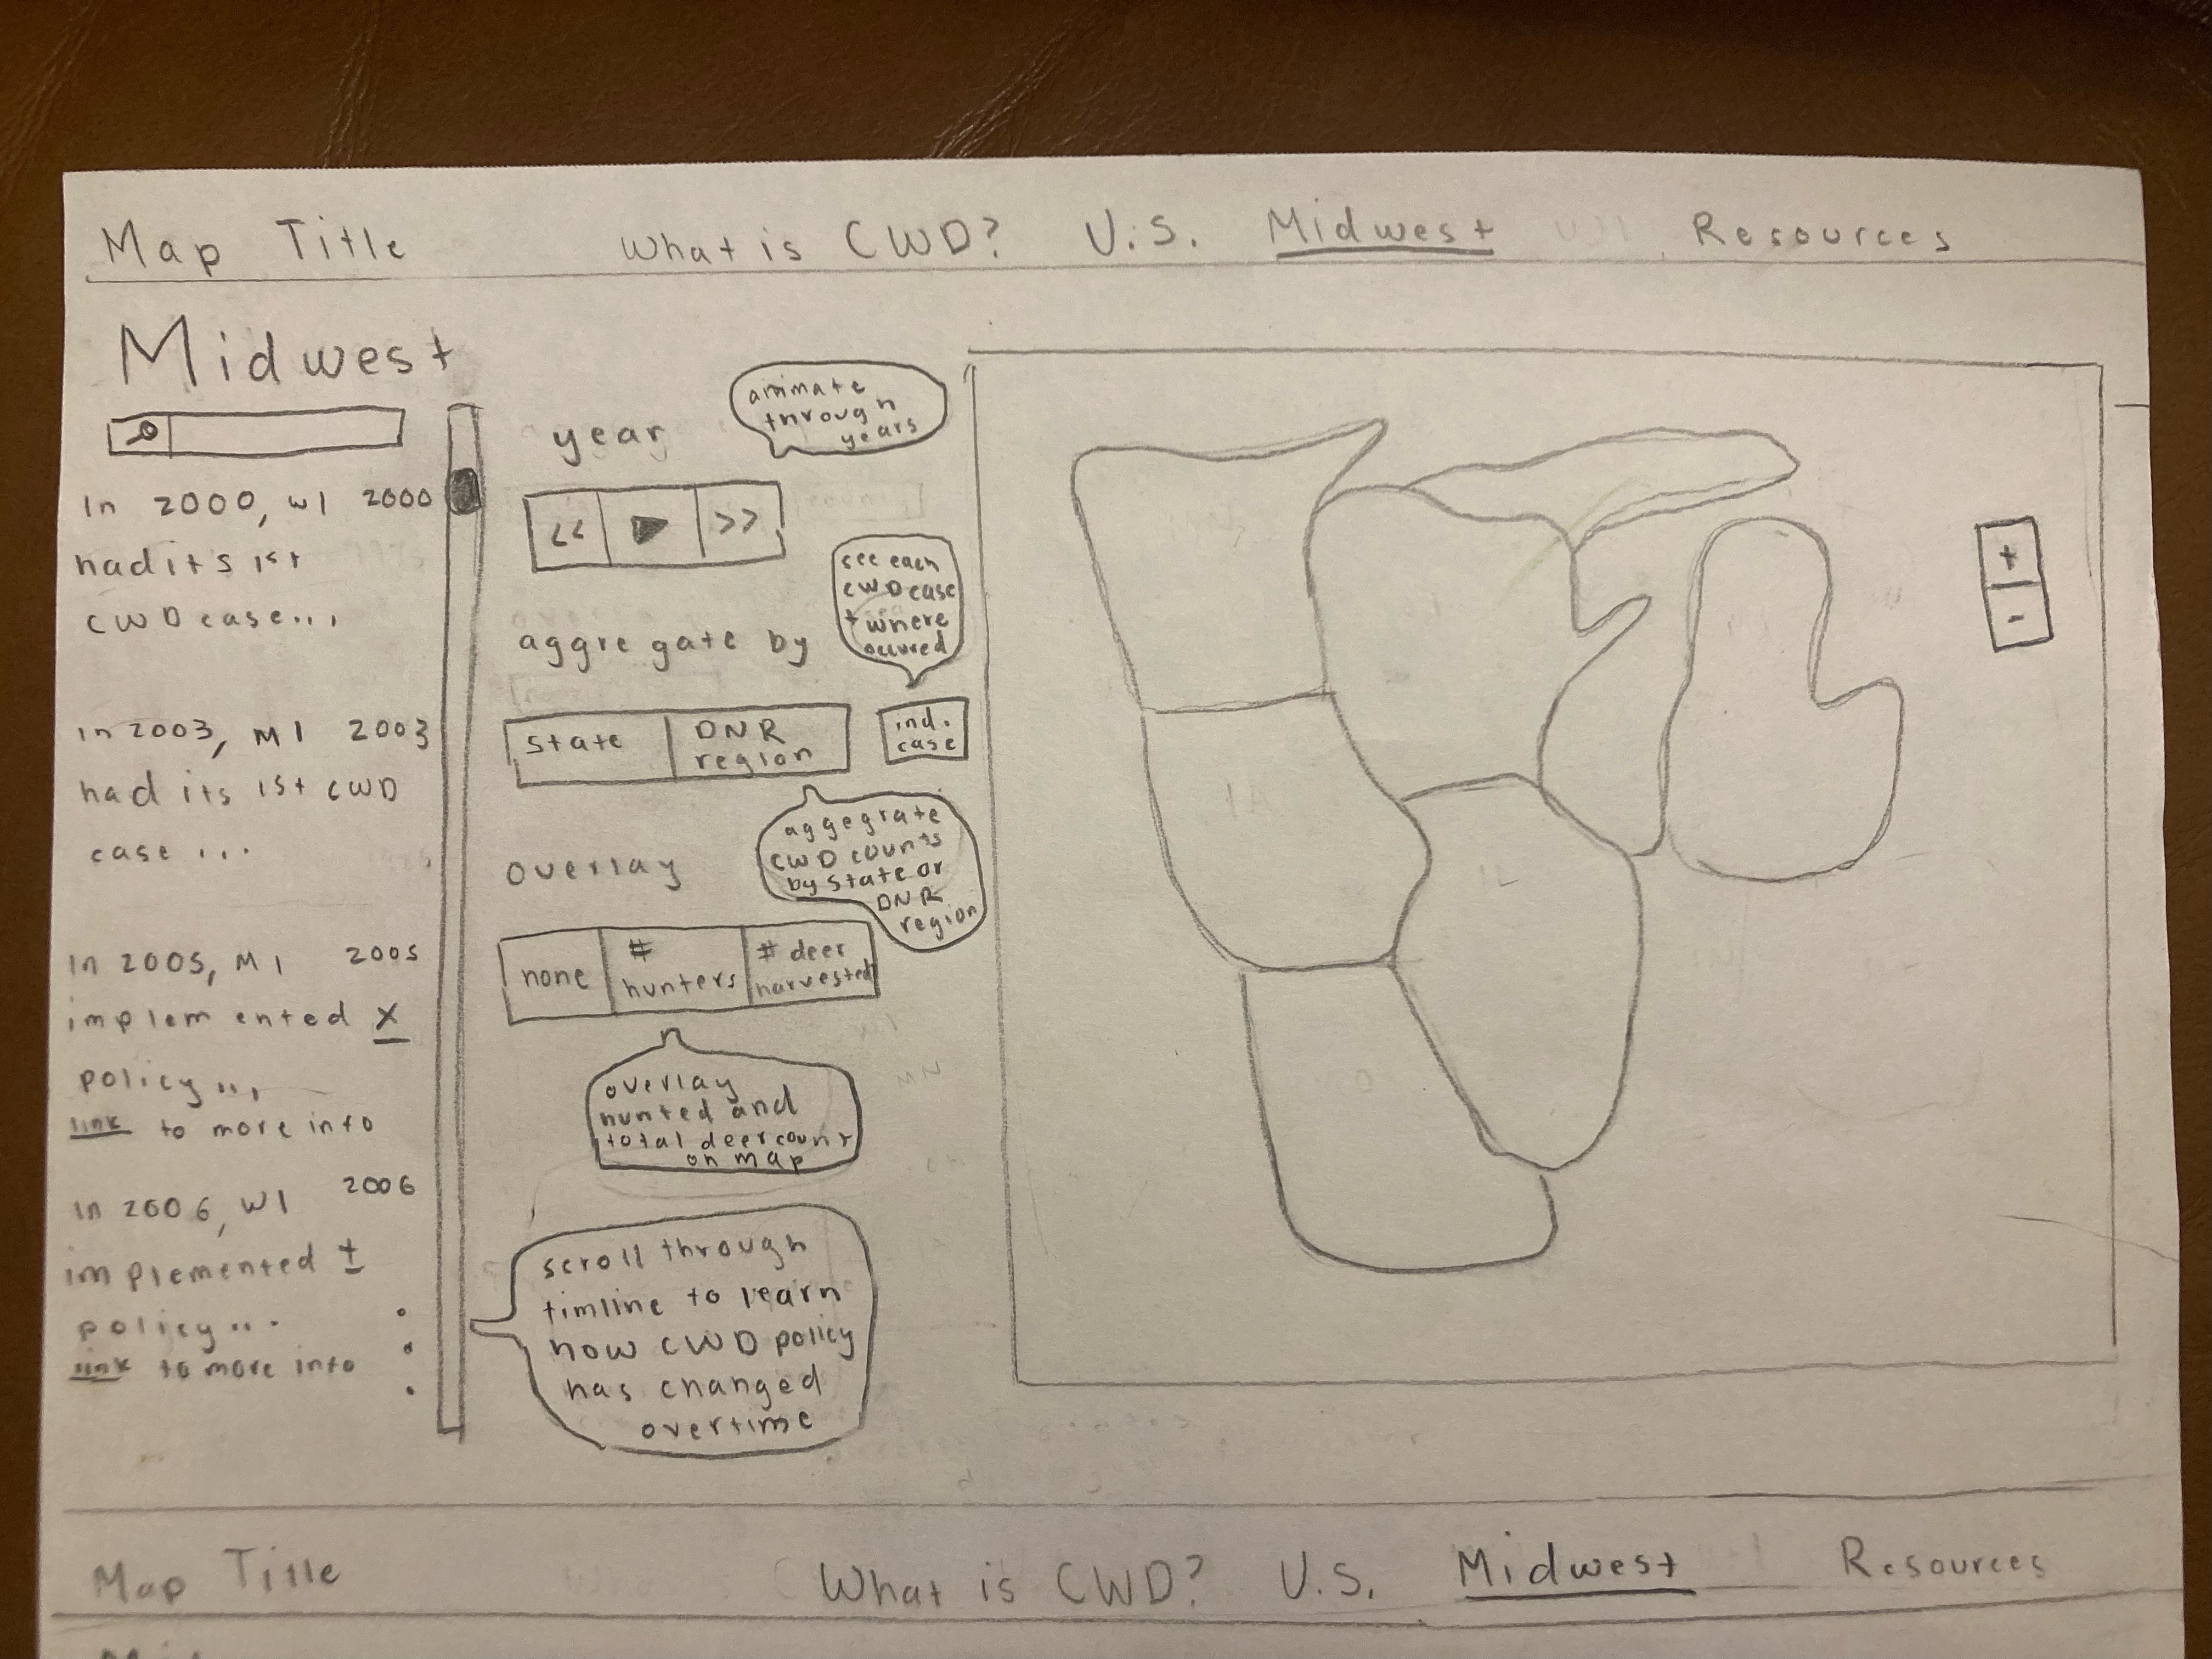 Map Title What is CWD? U.S. Midwest Resources
Midwest
In 2000, WI 2000
had its 1st
CWD case...
In 2003, MI 2003
had its 1st CWD
case ...
In 2005, MI 2005
implemented X
policy...
link to more info
In 2006, WI 2006
implemented ±
policy...
link to more info
year
animate
through
years
<< ▶ >>
aggregate by
see each
CWD case
+ where
occured
state
DNR
region
ind.
case
aggegrate
CWD counts
by state or
DNR
region
overlay
none
#
hunters
# deer
harvested
overlay
hunted and
total deer count
on map
scroll through
timline to learn
how CWD policy
has changed
overtime
+
-
IL
MN
Map Title What is CWD? U.S. Midwest Resources